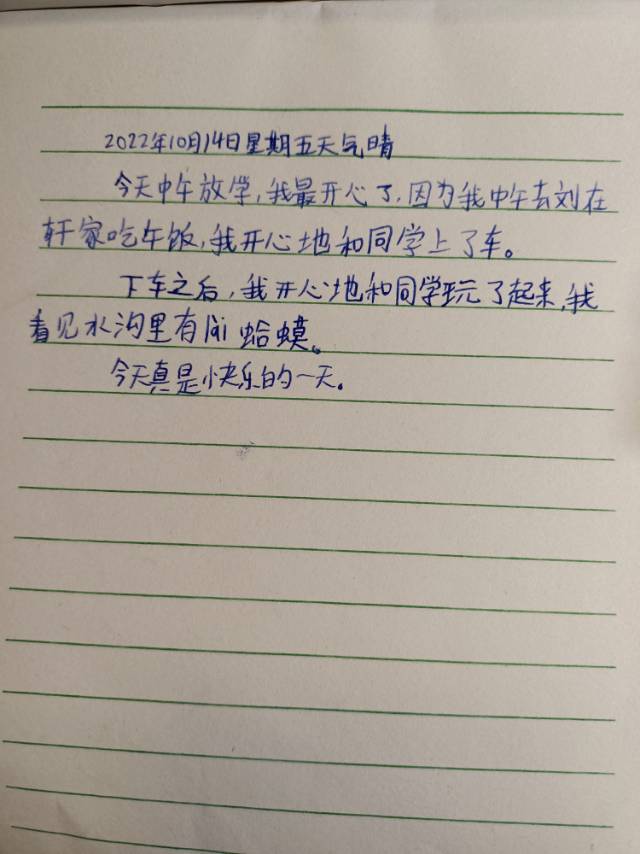 2022年10月14日星期五天气晴
今天中午放学,我最开心了,因为我中午去刘在
轩家吃午饭,我开心地和同学上了车。
下车之后,我开心地和同学玩了起来,我
看见水沟里有lài蛤蟆。
今天真是快乐的一天。